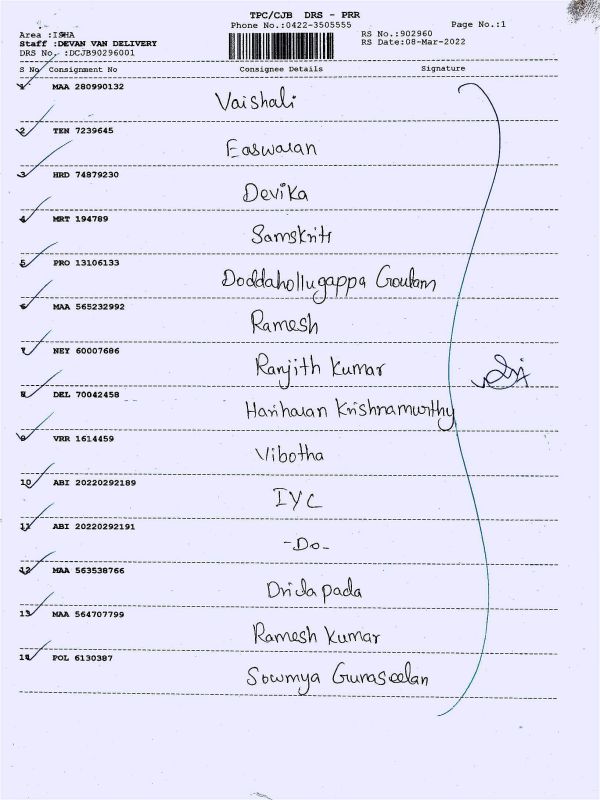 TPC/CJB DRS - PRR
Phone No.:0422-3505555
Page No.:1
Area :ISHA
Staff :DEVAN VAN DELIVERY
DRS No. :DCJB90296001
RS No.:902960
RS Date:08-Mar-2022
S No Consignment No Consignee Details Signature
1 MAA 280990132
Vaishali
2 TEN 7239645
Easwaran
3 HRD 74879230
Devika
4 MRT 194789
Samskriti
5 PRO 13106133
Doddahollugappa Goutam
6 MAA 565232992
Ramesh
7 NEY 60007686
Ranjith Kumar
8 DEL 70042458
Hariharan Krishnamurthy
9 VRR 1614459
Vibotha
10 ABI 20220292189
IYC
11 ABI 20220292191
-Do-
12 MAA 563538766
13 MAA 564707799
Ramesh Kumar
14 POL 6130387
Sowmya Gunaseelan